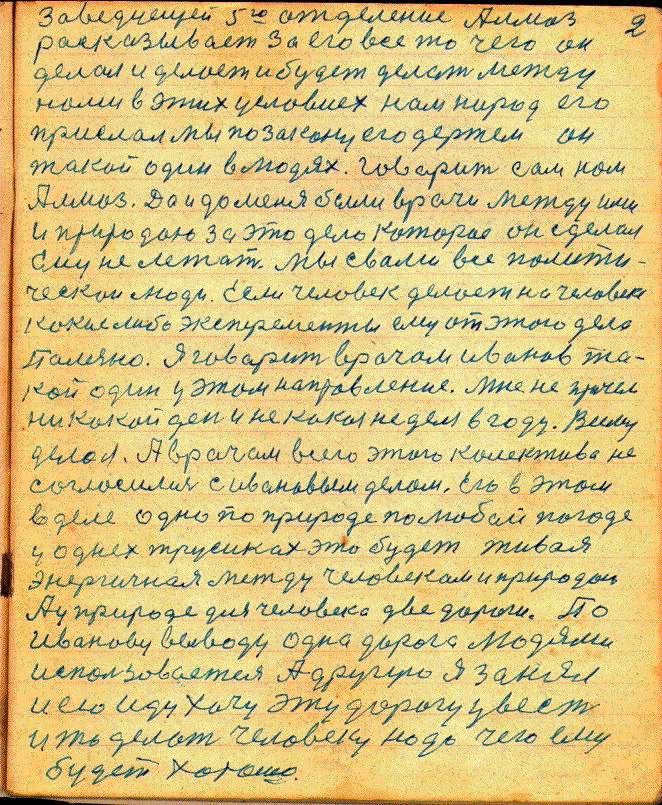 2
Заведующей 5го отделение Алмоз
расказывает За его все то чего он
делал и делает и будет делат между
нами в этих условиех нам народ его
прислал мы по закону его держем он
такой один в людях. Говарит сам нам
Алмоз. Да и до меня были врачи между ими
и природаю За это дело которае он сделал
Ему не летат. Мы с вами все полити-
ческои люди. Если человек делает на человека
какие либо эксперементы ему от этого дела
Палезно. Я говарит врачам иванов та-
кой один у этом направление. Мне не
никокой ден и не какая неделя в году.
делал. А врачам всего этого колектива не
согласился с ивановым делом, Его в этом
в деле одно по природе по любой погоде
у однех трусиках это будет живая
Энергичная между человекам и природаю
А у природе для человека две дороги. По
Иванову выводу одна дорога Людями
использвается А другую Я занял
и ею иду Хочу эту дорогу увест
и то делат человеку надо чего ему
будет хорошо.